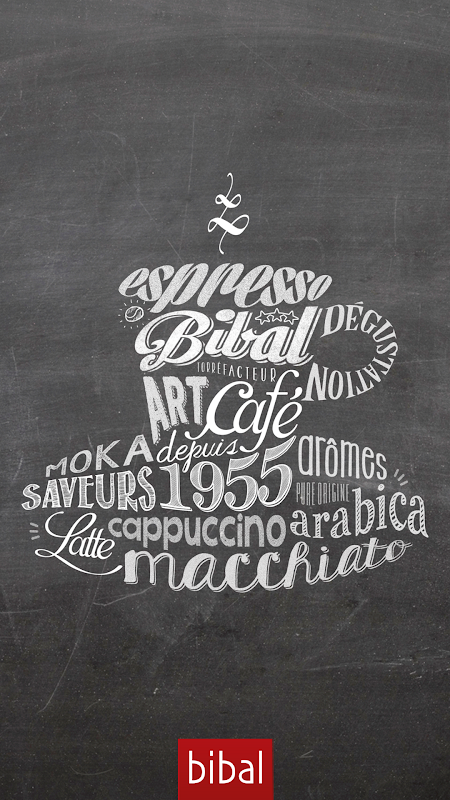 espresso
Bibal
DÉGUSTATION
TORRÉFACTEUR
ART Café
MOKA depuis arômes
SAVEURS 1955 PURE ORIGINE
Latte cappuccino arabica
macchiato
bibal